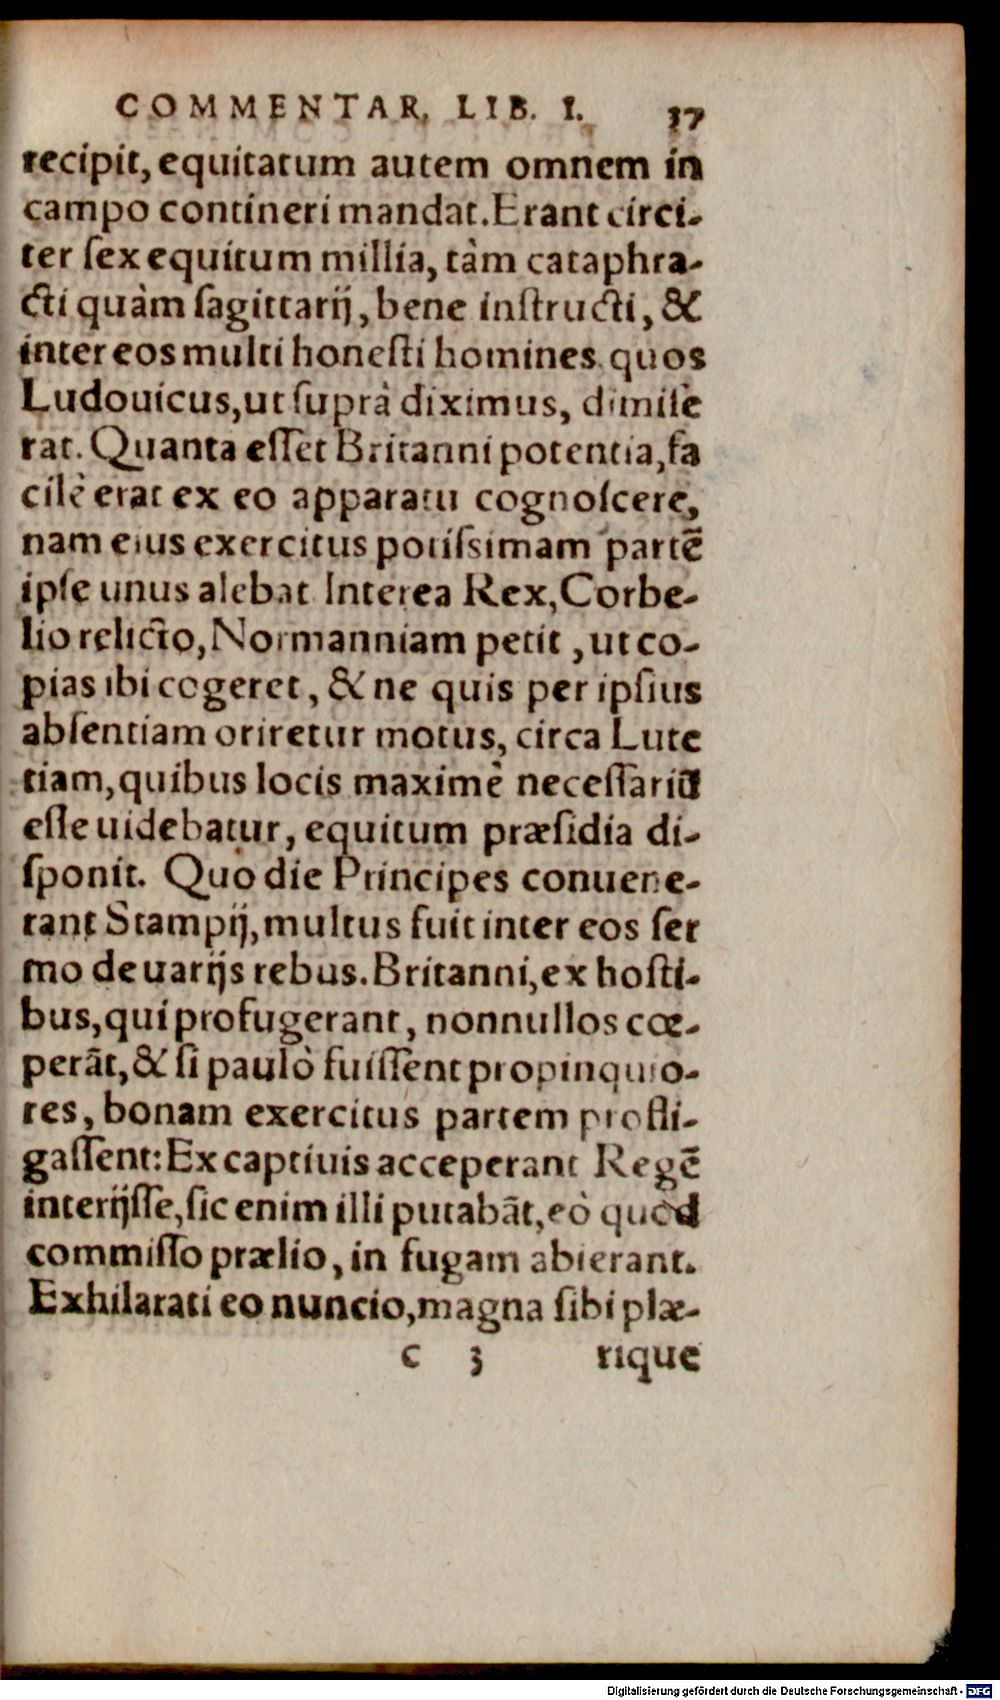 COMMENTAR. LIB. I. 37
recipit, equitatum autem omnem in
campo contineri mandat. Erant circi-
ter ſex equitum millia, tàm cataphra-
cti quàm ſagittarij, bene inſtructi, &
inter eos multi honeſti homines quos
Ludouicus, ut ſuprà diximus, dimiſè
rat. Quanta eſſet Britanni potentia, fa
cilè erat ex eo apparatu cognoſcere,
nam eius exercitus potiſsimam partẽ
ipſe unus alebat Interea Rex, Corbe-
lio relicto, Normanniam petit, ut co-
pias ibi cogeret, & ne quis per ipſius
abſentiam oriretur motus, circa Lute
tiam, quibus locis maximè neceſſariũ
eſſe uidebatur, equitum præſidia di-
ſponit. Quo die Principes conuene-
rant Stampij, multus fuit inter eos ſer
mo de uarijs rebus. Britanni, ex hoſti-
bus, qui profugerant, nonnullos cœ-
perãt, & ſi paulò fuiſſent propinquio-
res, bonam exercitus partem profli-
gaſſent: Ex captiuis acceperant Regẽ
interijſſe, ſic enim illi putabãt, eò quòd
commiſſo prælio, in fugam abierant.
Exhilarati eo nuncio, magna ſibi plæ-
c 3 rique
Digitalisierung gefördert durch die Deutsche Forschungsgemeinschaft - DFG